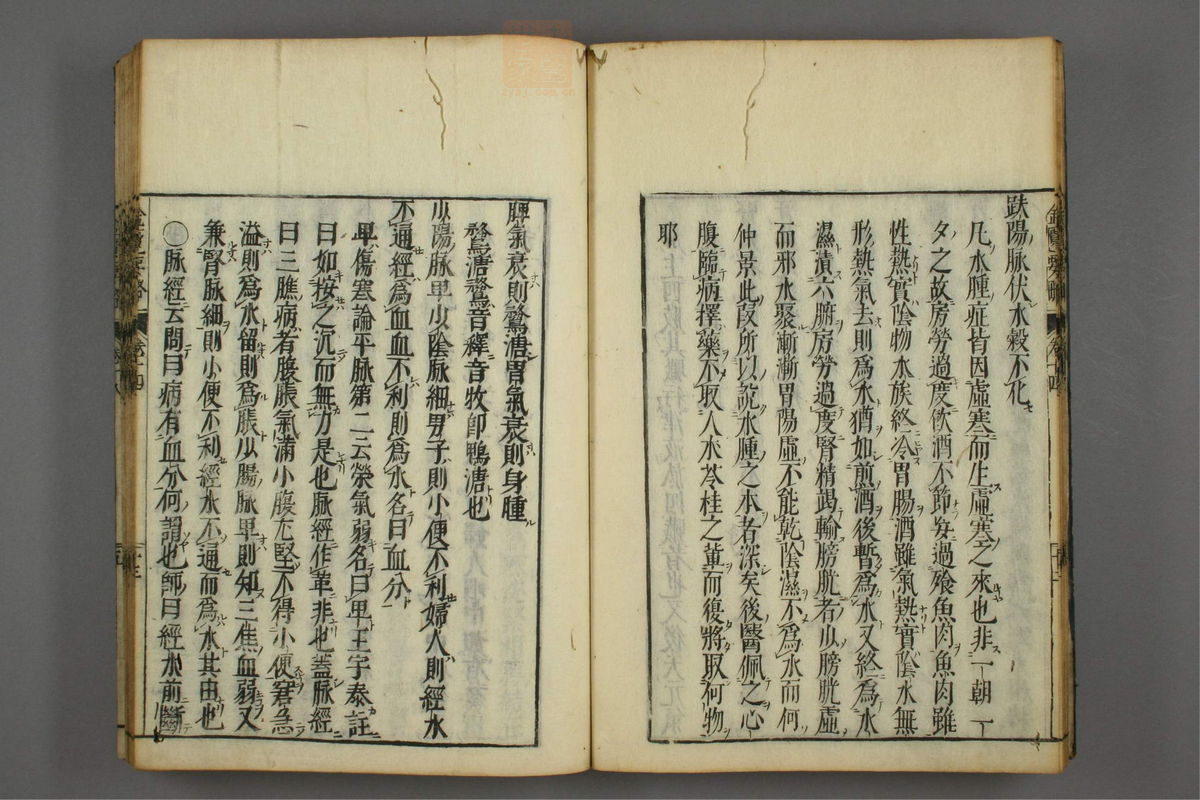 趺陽脉伏水穀不化
凡水腫症皆因虛寒而生虛寒之來也非一朝一
夕之故房勞過度飲酒不節妄過飱魚肉魚肉雖
性熱實陰物水族終冷胃腸酒雖氣熱實陰水無
形熱氣去則爲水猶如煎酒後暫爲水又終爲水
濕漬六腑房勞過度腎精竭輸膀胱者以膀胱虛
而邪水聚漸漸胃陽虛不能乾陰濕不爲水而何
仲景此叚所以說水腫之本者深矣後醫佩之心
腹臨病擇藥不取人朮苓桂之軰而復將取何物
耶
脾氣衰則鶩溏胃氣衰則身腫
鶩溏鶩音釋音牧卽鴨溏也
少陽脉卑少陰脉細男子則小便不利婦人則經水
不通經爲血血不利則爲水名曰血分
卑傷寒論平脉第二云榮氣弱名曰卑王宇泰註
曰如按之沉而無力是也脉經作革非也蓋脉經
曰三膲病者腹脹氣滿小腹尤堅不得小便窘急
溢則爲水留則爲脹少腸脉卑則知三焦血弱又
兼腎脉細則小便不利經水不通而爲水其由也
○脉經云問曰病有血分何謂也師曰經水前斷